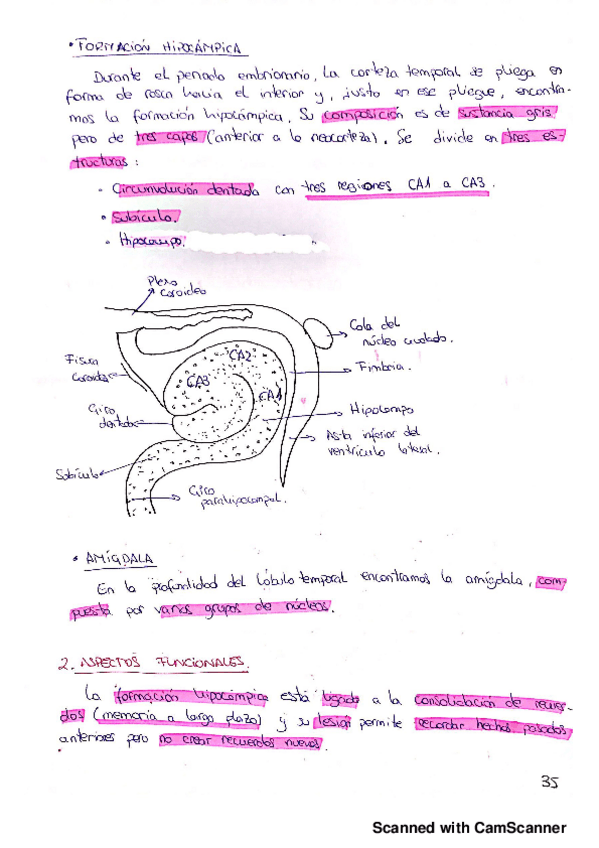 • FORMACIÓN HIPOCÁMPICA
Durante el periodo embrionario, la corteza temporal se pliega en
forma de rosca hacia el interior y, justo en ese pliegue, encontra-
mos la formación hipocámpica. Su composición es de sustancia gris
pero de tres capas (anterior a la neocorteza). Se divide en tres es-
tructuras:
• Circunvolución dentada con tres regiones CA1 a CA3.
• Subículo.
• Hipocampo.
Plexo
coroideo
Cola del
núcleo caudado.
Fisura
coroidea
CA2
Fimbria.
CA3
CA1
Giro
dentado
Hipocampo
Asta inferior del
ventrículo lateral.
Subículo
Giro
parahipocampal.
• AMÍGDALA
En la profundidad del lóbulo temporal encontramos la amígdala, com-
puesta por varios grupos de núcleos.
2. ASPECTOS FUNCIONALES.
La formación hipocámpica está ligada a la consolidación de recuer-
dos (memoria a largo plazo) y su lesión permite recordar hechos pasados
anteriores pero no crear recuerdos nuevos.
35
Scanned with CamScanner